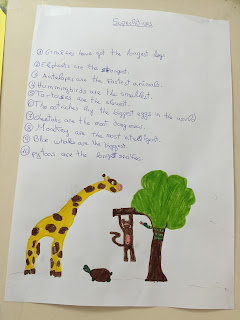 Superlatives
① Giraffes have got the longest legs
② Elephants are the strongest.
③ Antelopes are the fastest animals.
④ Hummingbirds are the smallest.
⑤ Tortoises are the slowest.
⑥ The ostriches lay the biggest eggs in the world
⑦ Cheetahs are the most dangerous.
⑧ Monkeys are the most intelligent.
⑨ Blue whales are the biggest.
⑩ Pythons are the longest snakes.